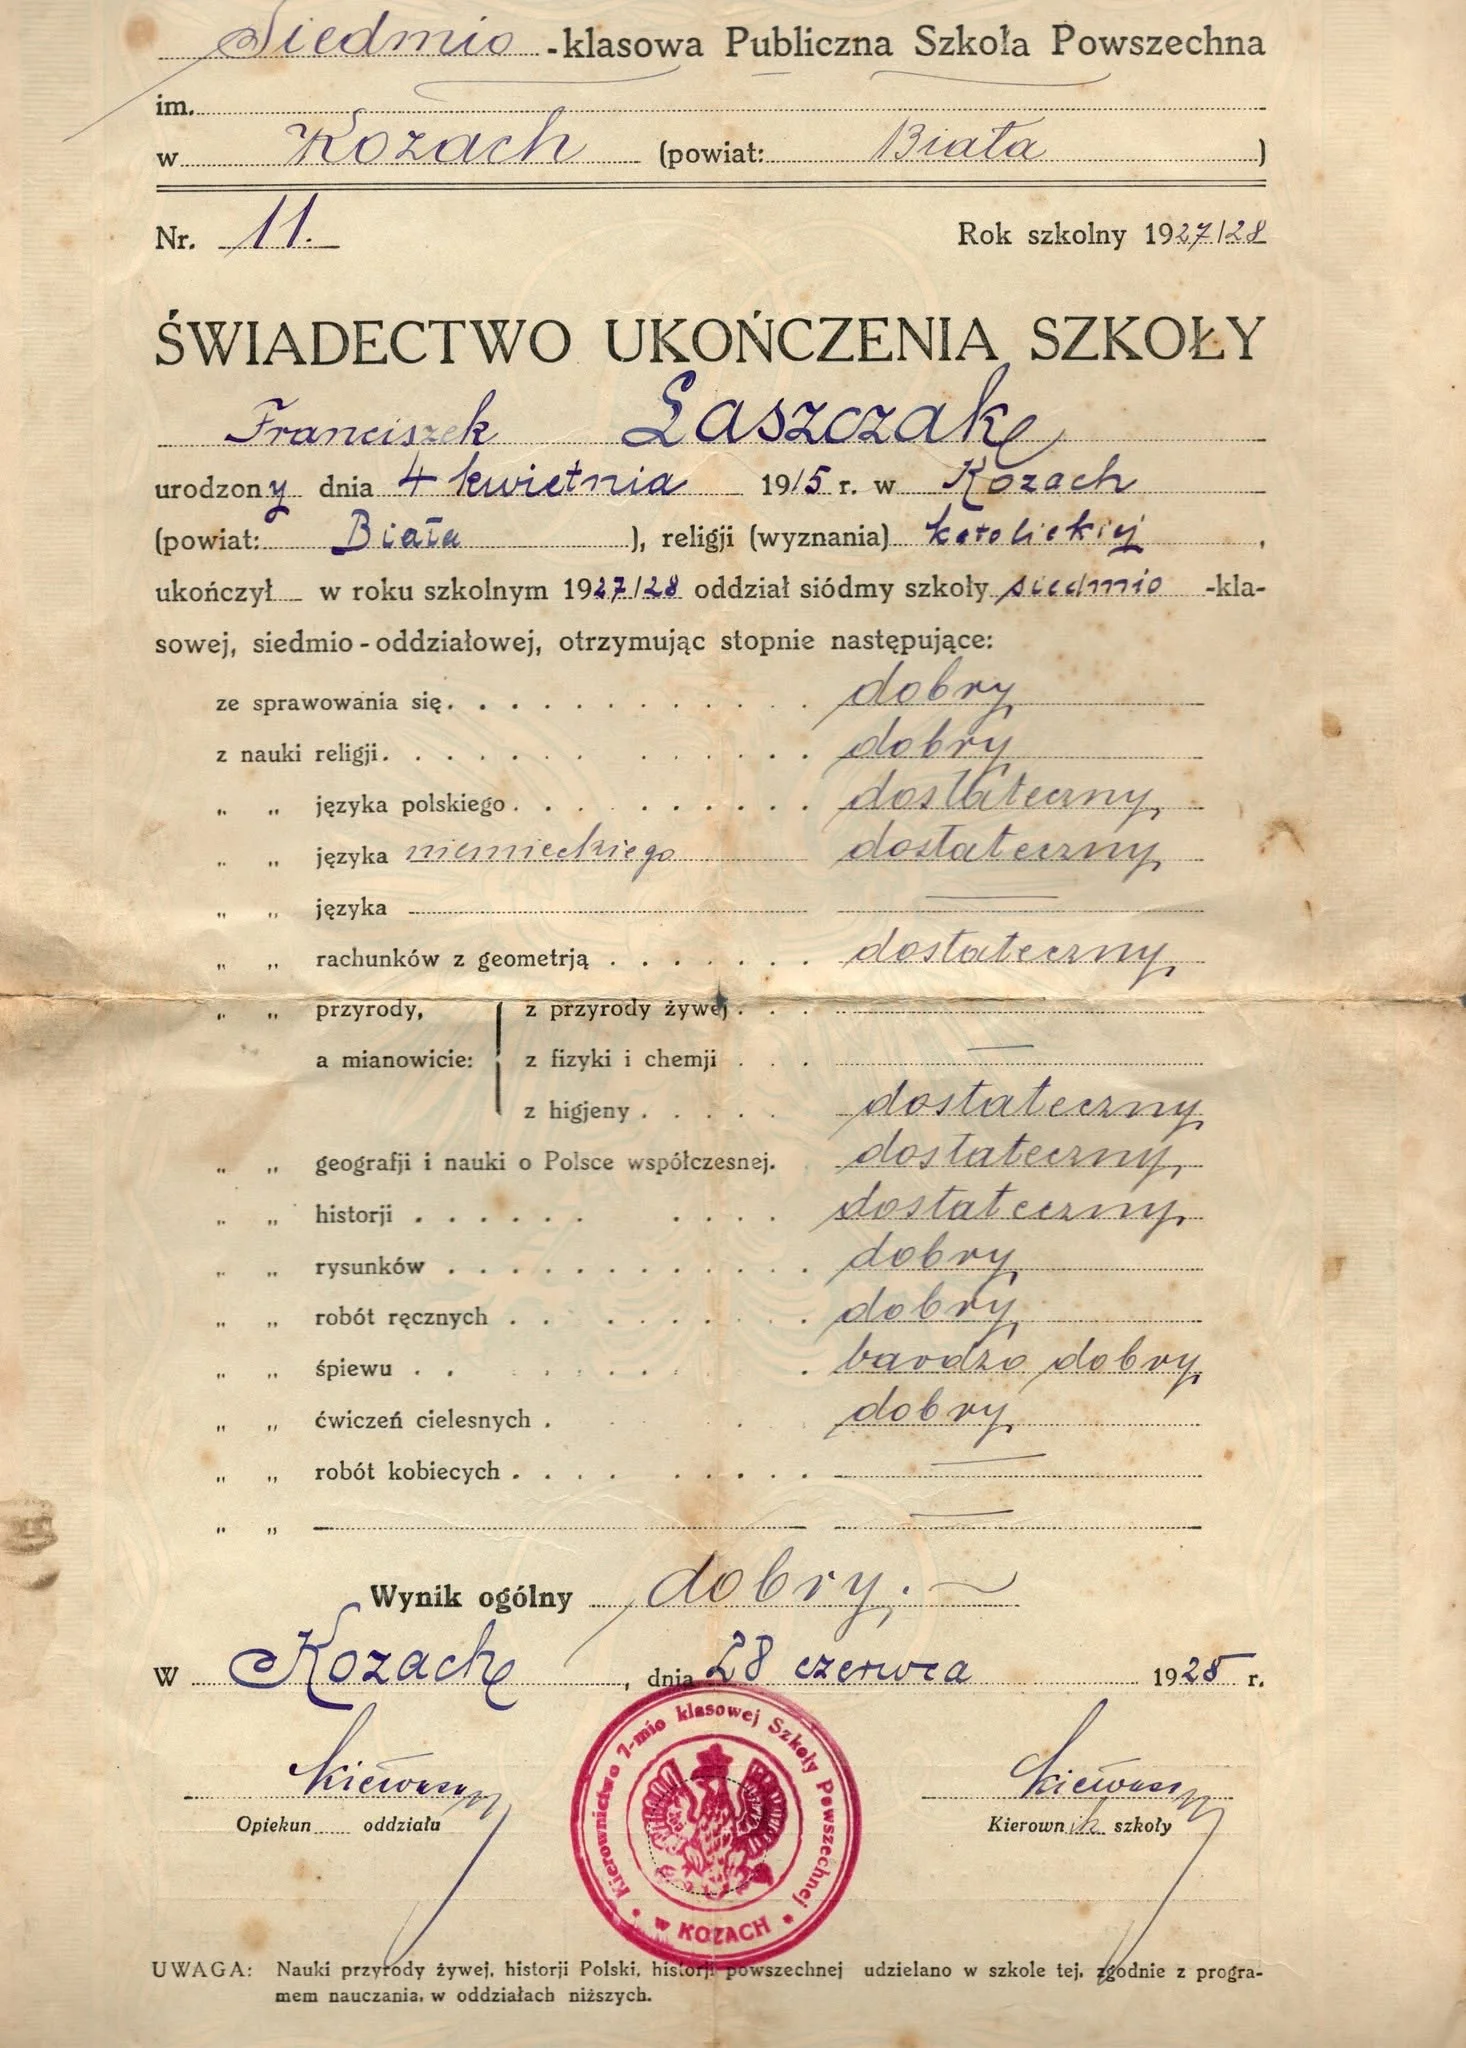 Siedmio -klasowa Publiczna Szkoła Powszechna
im.
w Kozach (powiat: Biała )
Nr. 11. Rok szkolny 1927/28
ŚWIADECTWO UKOŃCZENIA SZKOŁY
Franciszek Łaszczak
urodzony dnia 4 kwietnia 1915 r. w Kozach
(powiat: Biała ), religji (wyznania) katolickiej ,
ukończył w roku szkolnym 1927/28 oddział siódmy szkoły siedmio -kla-
sowej, siedmio-oddziałowej, otrzymując stopnie następujące:
ze sprawowania się dobry
z nauki religji dobry
„ „ języka polskiego dostateczny
„ „ języka niemieckiego dostateczny
„ „ języka —
„ „ rachunków z geometrją dostateczny
„ „ przyrody, z przyrody żywej
a mianowicie: z fizyki i chemji —
z higjeny dostateczny
„ „ geografji i nauki o Polsce współczesnej. dostateczny
„ „ historji dostateczny
„ „ rysunków dobry
„ „ robót ręcznych dobry
„ „ śpiewu bardzo dobry
„ „ ćwiczeń cielesnych dobry
„ „ robót kobiecych —
„ „ —
Wynik ogólny dobry.
W Kozach , dnia 28 czerwca 1928 r.
Opiekun oddziału Kierownik szkoły
Kierownictwo 7-mio klasowej Szkoły Powszechnej
w KOZACH
UWAGA: Nauki przyrody żywej, historji Polski, historji powszechnej udzielano w szkole tej, zgodnie z progra-
mem nauczania, w oddziałach niższych.